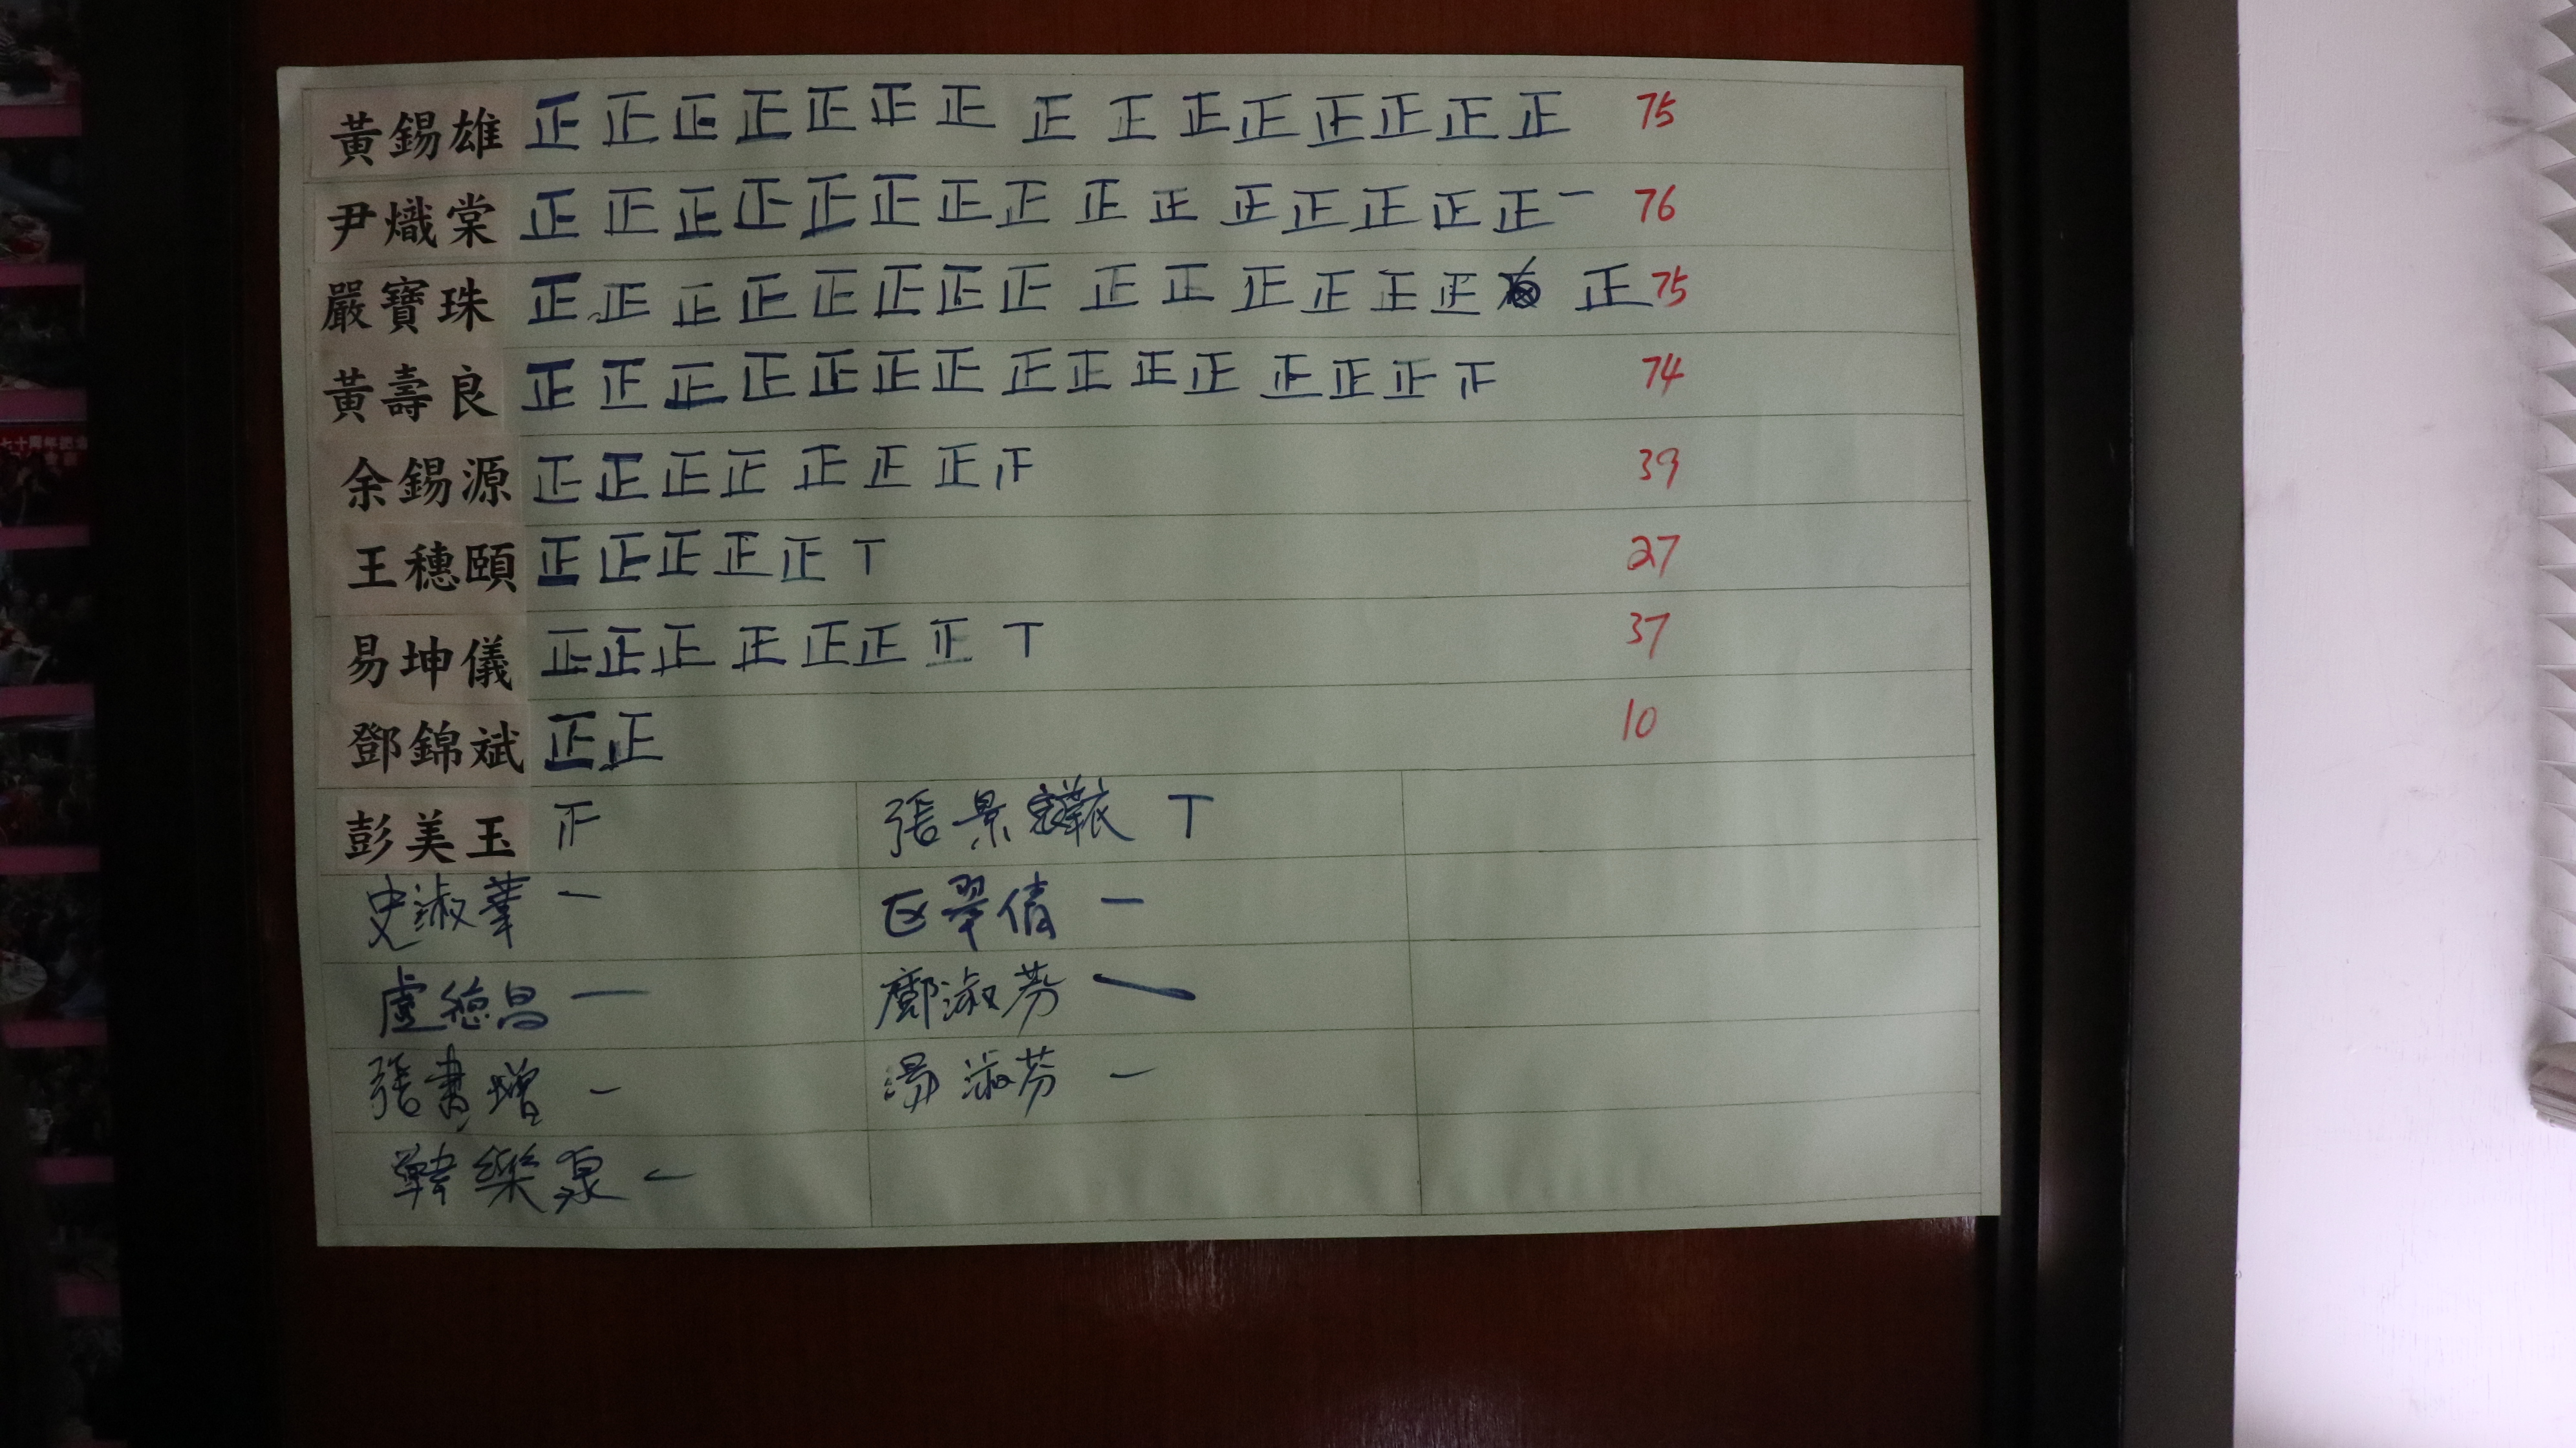 黃錫雄 正正正正正正正正正正正正正正正 75
尹熾棠 正正正正正正正正正正正正正正正一 76
嚴寶珠 正正正正正正正正正正正正正正 正 75
黃壽良 正正正正正正正正正正正正正正 74
余錫源 正正正正正正正 39
王穗頤 正正正正正丅 27
易坤儀 正正正正正正正丅 37
鄧錦斌 正正 10
彭美玉
張景 丅
史淑華 一
区翠倩 一
盧德昌 一
鄺淑芬 一
張書增 一
湯淑芬 一
韓樂泉 一
七十周年